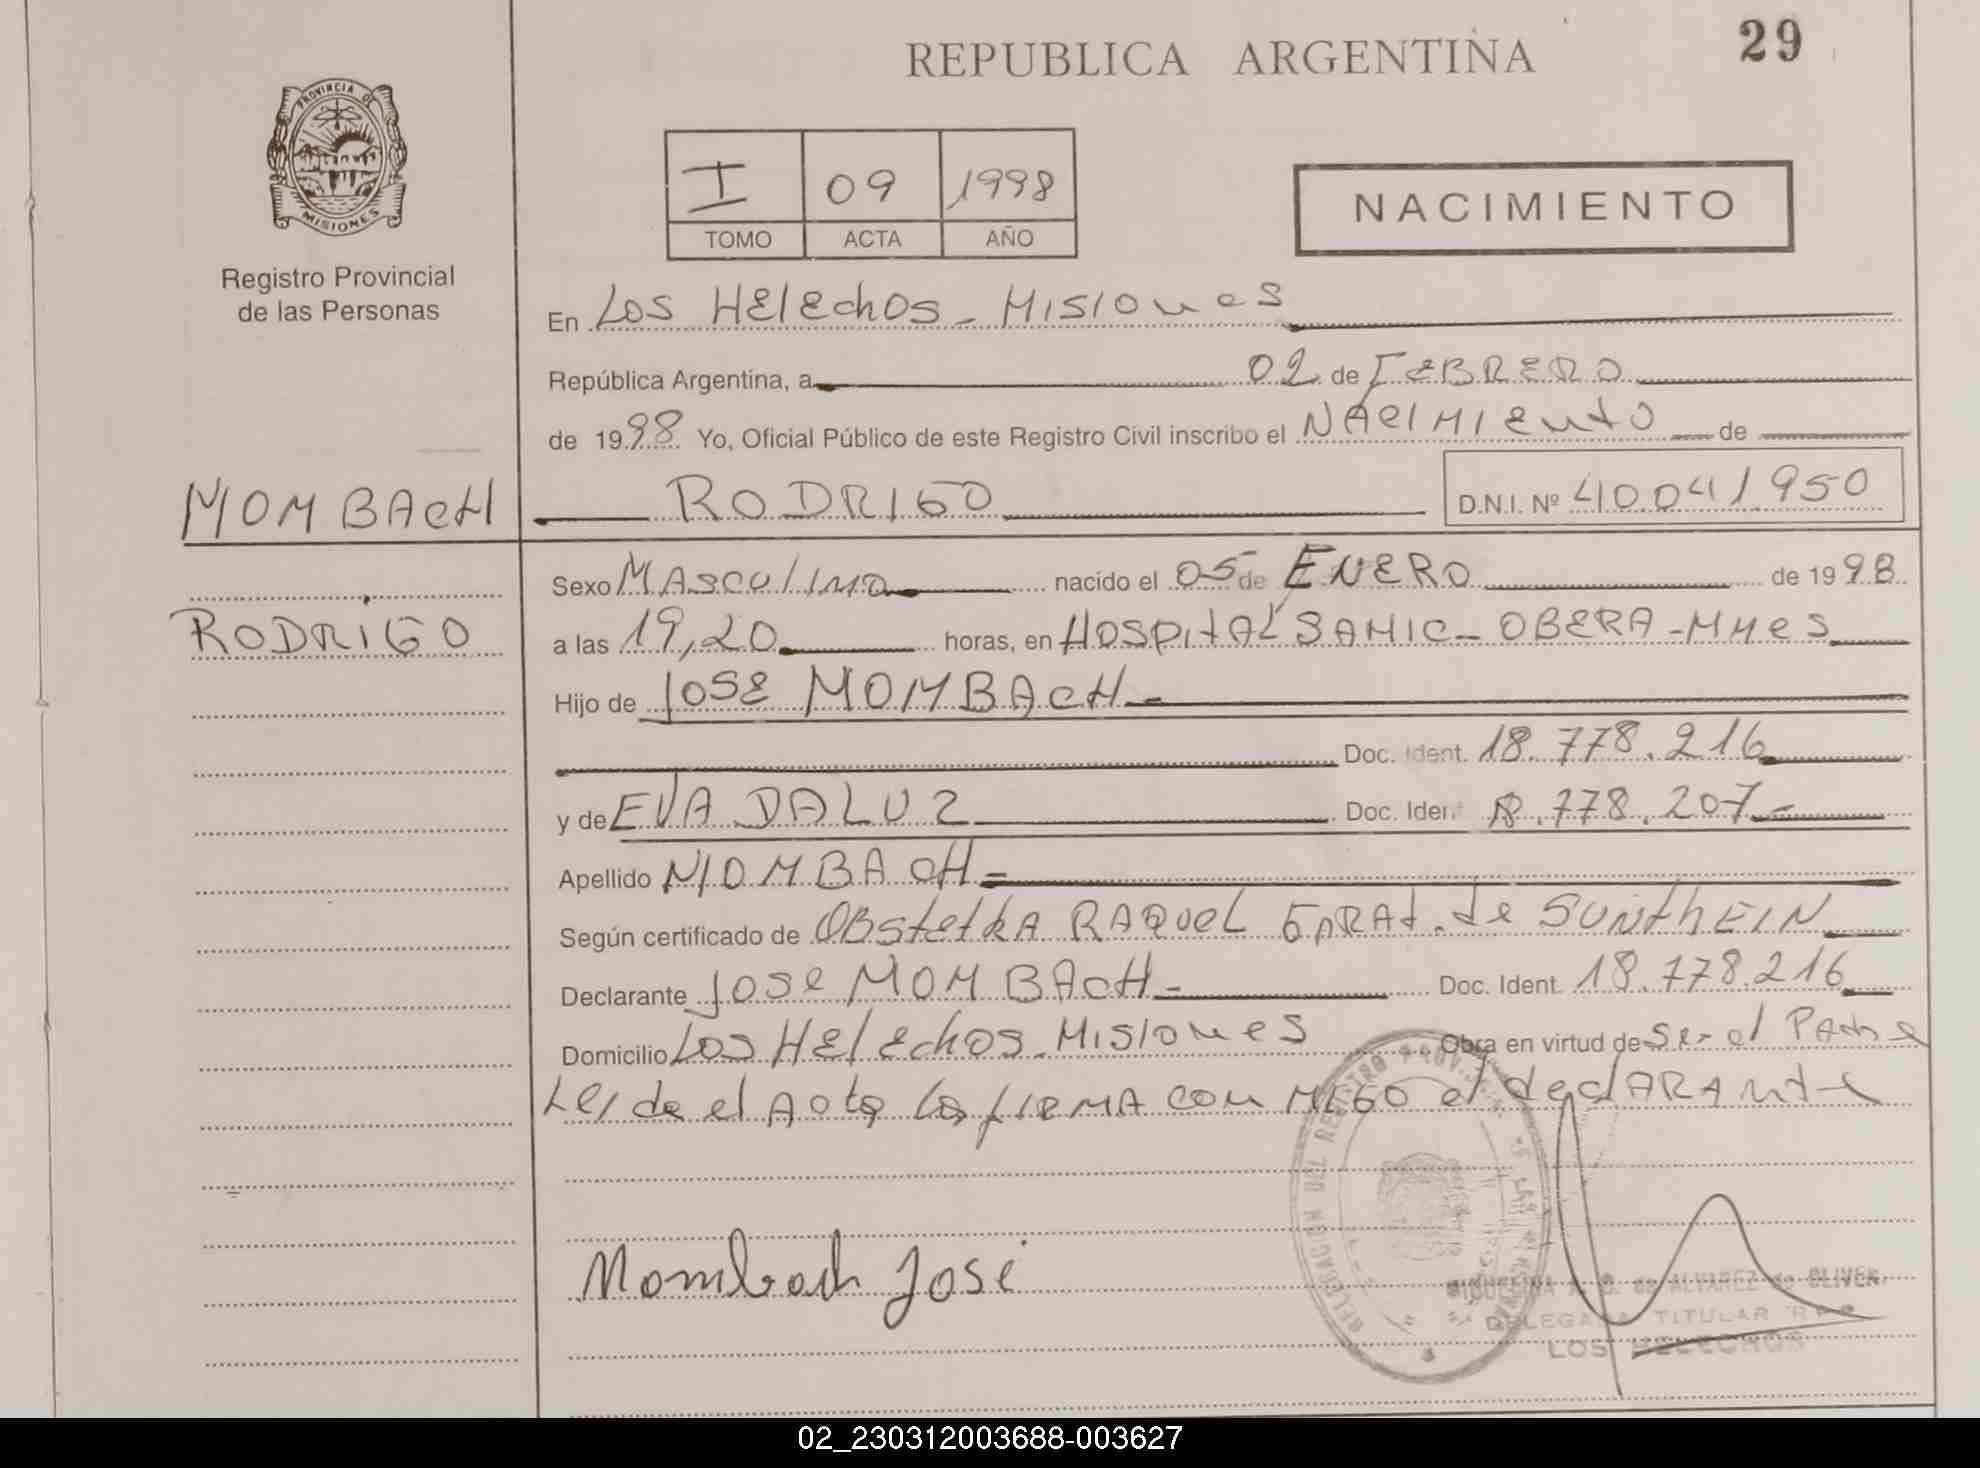 REPUBLICA ARGENTINA
29
PROVINCIA DE
MISIONES
Registro Provincial
de las Personas
I 09 1998
TOMO ACTA AÑO
NACIMIENTO
En Los HElEchos - Misiones
República Argentina, a 02 de FEBRERO
de 1998 Yo, Oficial Público de este Registro Civil inscribo el NAciMiento de
MOMBAcH
RODRIGO
D.N.I. Nº 40.041.950
Sexo MAsculino nacido el 05 de ENERO de 1998
RODRIGO
a las 19,20 horas, en HospitAL SAMIC - OBERA - Mnes
Hijo de JosE MOMBAcH -
Doc. Ident. 18.778.216
y de EVA DALUZ Doc. Ident 18.778.207 -
Apellido MOMBAcH -
Según certificado de OBstetRA RAQueL de SUNthEIN
Declarante Jose MOMBAcH - Doc. Ident. 18.778.216
Domicilio Los HElEchos - Misiones Obra en virtud de Ser el PAdre
Leida el Acta la fiRMA con el declARAnte
Mombach José
DELEGACION DEL REGISTRO
DE ALVAREZ de OLIVER
DELEGADA TITULAR
LOS HELECHOS
02_230312003688-003627